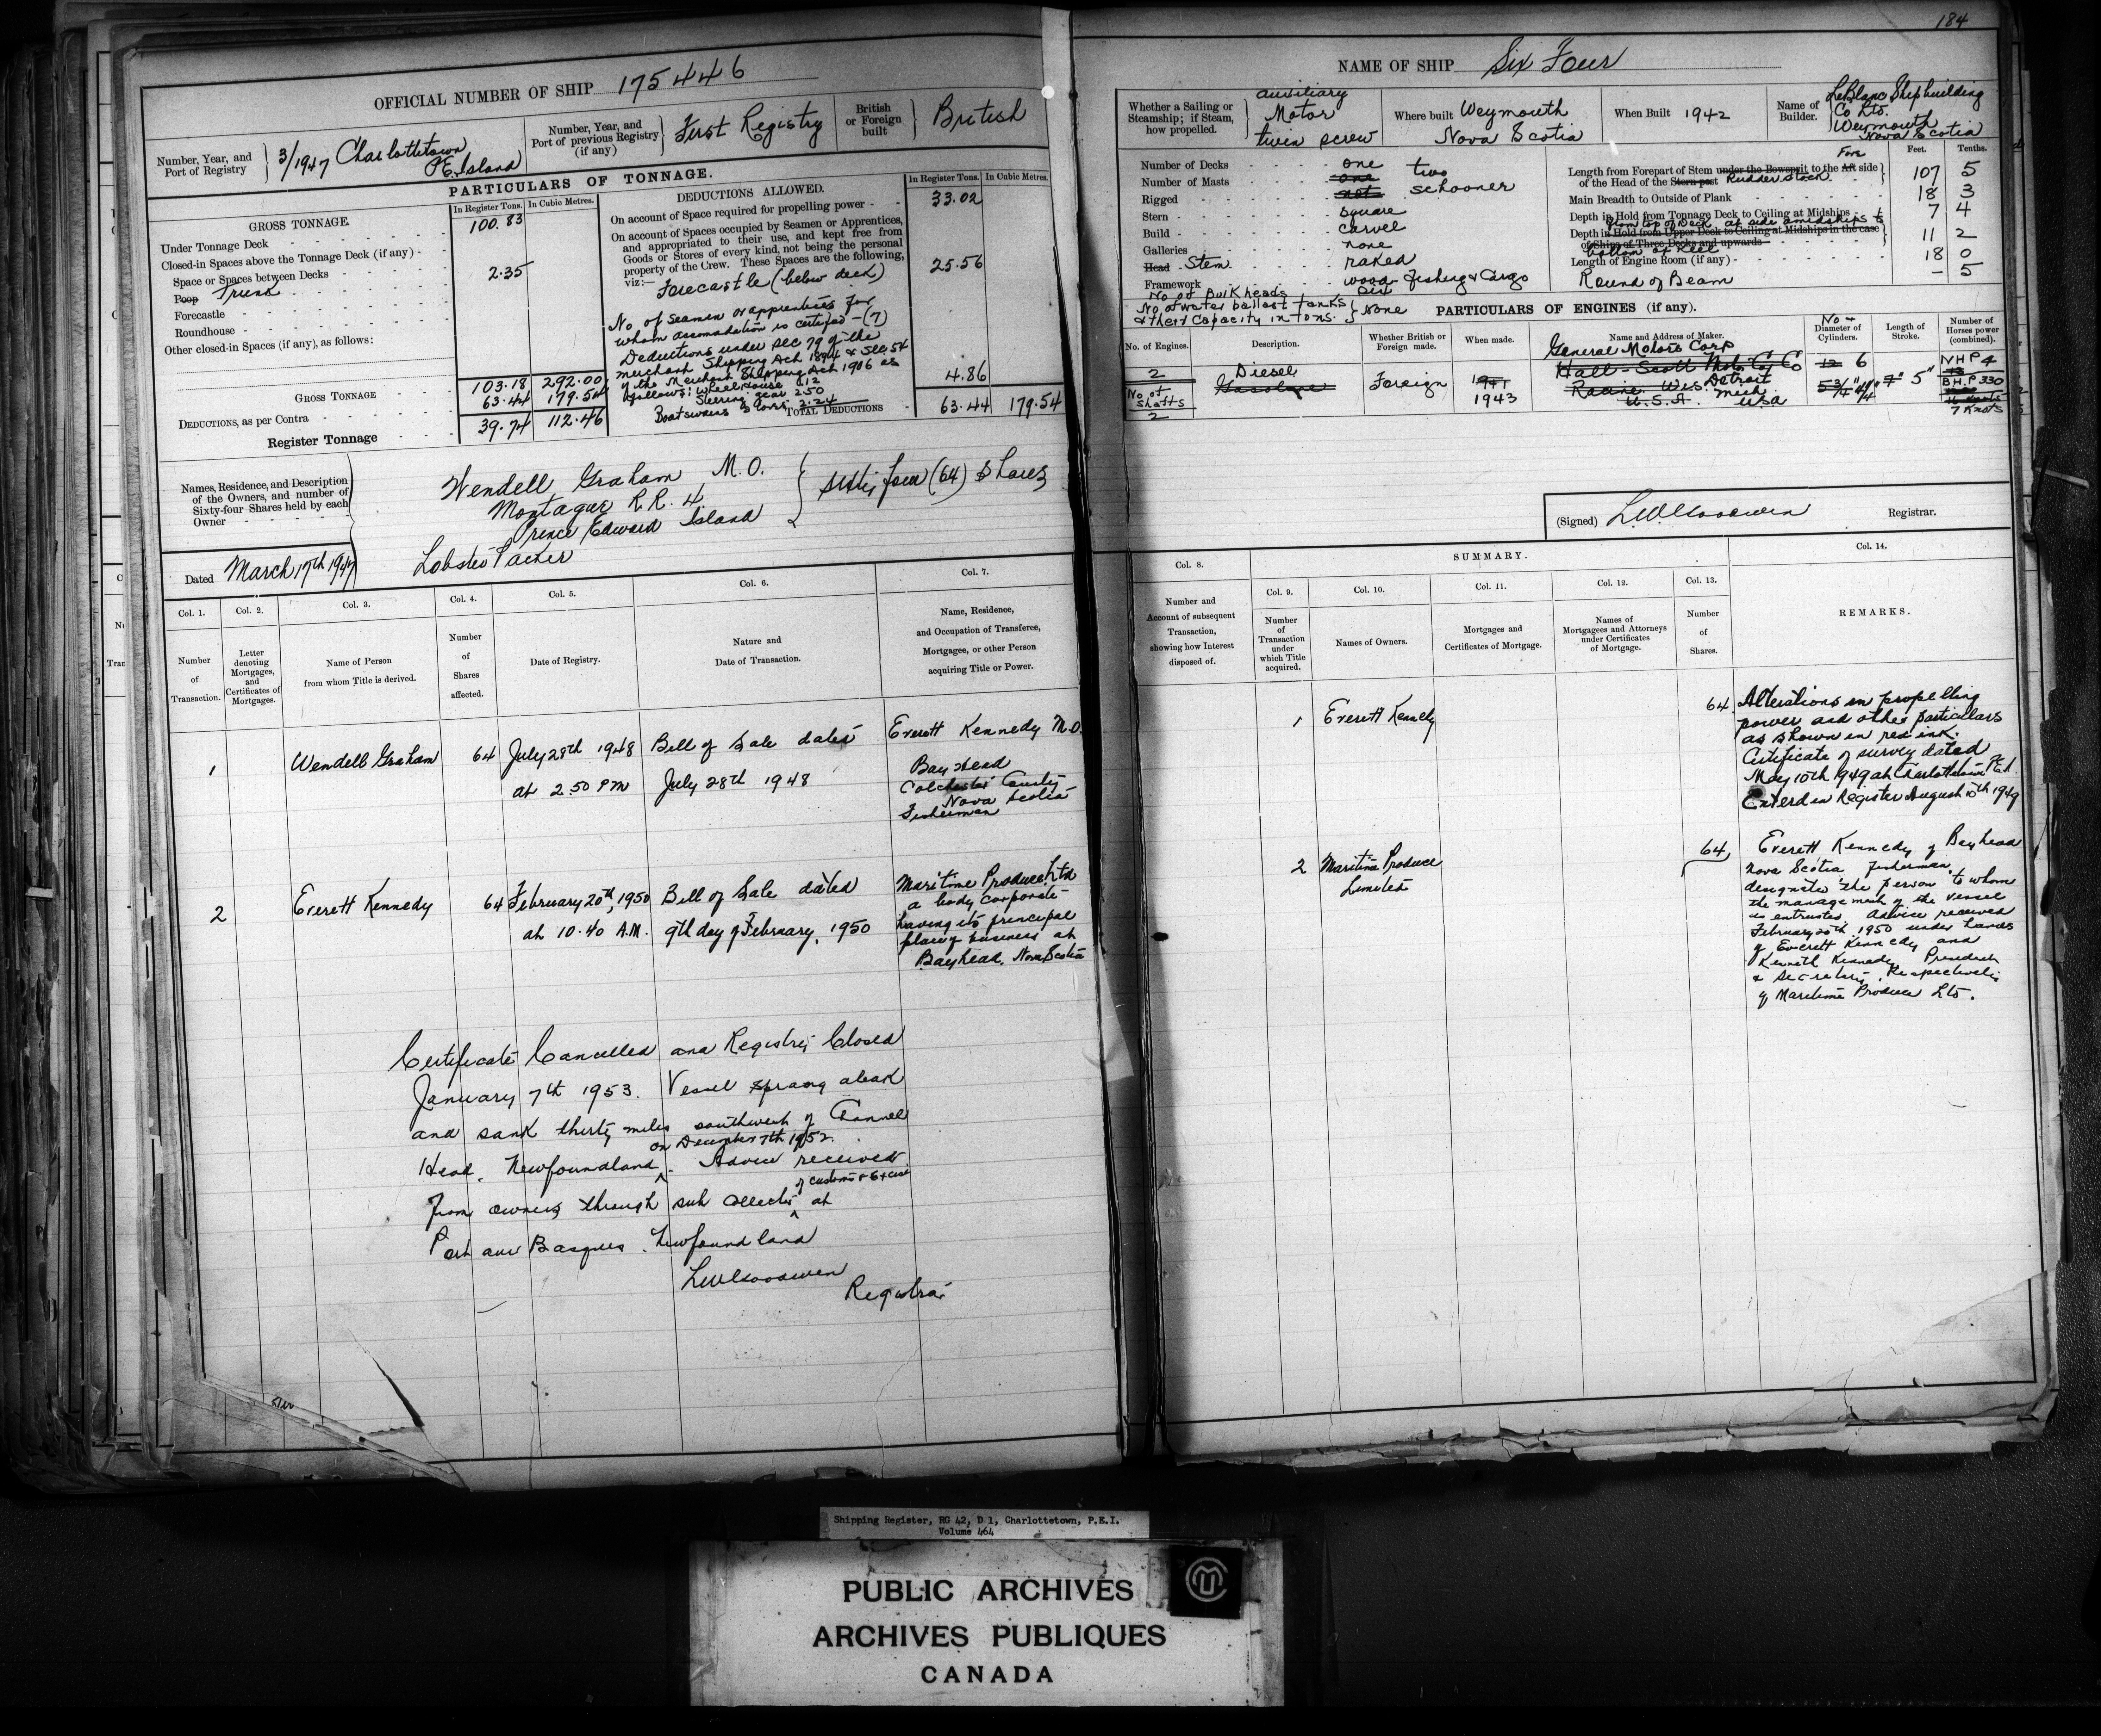 184
OFFICIAL NUMBER OF SHIP 175446
Number, Year, and Port of Registry
3/1947 Charlottetown
P.E. Island
Number, Year, and Port of previous Registry (if any)
First Registry
British or Foreign built
British
PARTICULARS OF TONNAGE.
GROSS TONNAGE.
In Register Tons.
In Cubic Metres.
Under Tonnage Deck 100.83
Closed-in Spaces above the Tonnage Deck (if any) -
Space or Spaces between Decks
Poop Trunk 2.35
Forecastle
Roundhouse
Other closed-in Spaces (if any), as follows:
GROSS TONNAGE 103.18 292.00
DEDUCTIONS, as per Contra 63.44 179.54
Register Tonnage 39.74 112.46
DEDUCTIONS ALLOWED.
In Register Tons. In Cubic Metres.
On account of Space required for propelling power - - 33.02
On account of Spaces occupied by Seamen or Apprentices,
and appropriated to their use, and kept free from
Goods or Stores of every kind, not being the personal
property of the Crew. These Spaces are the following,
viz:—
Forecastle (below deck) 25.56
No of Seamen or apprentices for
whom accomadation is certified - (7)
Deductions under Sec 79 of the
Merchant Shipping Act 1894 & Sec. 54
of the Merchant Shipping Act 1906 as
follows: Wheelhouse .12 4.86
Steering gear 2.50
Boatswains Stores 2.24
TOTAL DEDUCTIONS 63.44 179.54
Names, Residence, and Description
of the Owners, and number of
Sixty-four Shares held by each
Owner
Wendell Graham M.O.
Montague R.R. 4
Prince Edward Island
Lobster Packer
Sixty four (64) Shares
Dated March 17th 1947
Col. 1. Col. 2. Col. 3. Col. 4. Col. 5. Col. 6. Col. 7.
Number of Transaction.
Letter denoting Mortgages, and Certificates of Mortgages.
Name of Person from whom Title is derived.
Number of Shares affected.
Date of Registry.
Nature and Date of Transaction.
Name, Residence, and Occupation of Transferee, Mortgagee, or other Person acquiring Title or Power.
1 Wendell Graham 64 July 28th 1948 Bill of Sale dated Everett Kennedy M.O.
at 2.50 PM July 28th 1948 Bay Head
Colchester County
Nova Scotia
Fisherman
2 Everett Kennedy 64 February 20th, 1950 Bill of Sale dated Maritime Produce Ltd
at 10.40 A.M. 9th day of February, 1950 a body corporate
having its principal
place of business at
Bayhead, Nova Scotia
Certificate Cancelled and Registry Closed
January 7th 1953. Vessel sprang aleak
and sank thirty miles southwest of Channel
on December 7th 1952.
Head, Newfoundland. Advice received
of Customs & Excise
from owners through sub Collector at
Port aux Basques, Newfoundland
Registrar
NAME OF SHIP Six Four
Whether a Sailing or Steamship; if Steam, how propelled.
Auxiliary
Motor
twin screw
Where built Weymouth
Nova Scotia
When Built 1942
Name of Builder.
LeBlanc Shipbuilding
Co Ltd.
Weymouth
Nova Scotia
Number of Decks one
Number of Masts one two
Rigged not schooner
Stern square
Build carvel
Galleries none
Head Stem raked
Framework wood - Fishing & Cargo
No of Bulkheads six
No of water ballast tanks
& their Capacity in tons. None
Feet. Tenths.
Length from Forepart of Stem under the Bowsprit to the Aft Fore side
of the Head of the Stern post Rudder Stock 107 5
Main Breadth to Outside of Plank 18 3
Depth in Hold from Tonnage Deck to Ceiling at Midships 7 4
from top of Deck at side amidships to
Depth in Hold from Upper Deck to Ceiling at Midships in the case
of Ships of Three Decks and upwards 11 2
bottom of Keel
Length of Engine Room (if any) 18 0
Round of Beam - 5
PARTICULARS OF ENGINES (if any).
No. of Engines.
Description.
Whether British or Foreign made.
When made.
Name and Address of Maker.
No & Diameter of Cylinders.
Length of Stroke.
Number of Horses power (combined).
2
No of Shafts
2
Diesel
Gasolene
Foreign
1941
1943
General Motors Corp
Hall-Scott Motor Car Co
Racine, Wis. Detroit
U.S.A. Mich.
USA
12 6
5 3/4" 4 1/4"
7" 5"
NHP 4
BHP 330
7 Knots
(Signed) Registrar.
SUMMARY.
Col. 8. Col. 9. Col. 10. Col. 11. Col. 12. Col. 13. Col. 14.
Number and Account of subsequent Transaction, showing how Interest disposed of.
Number of Transaction under which Title acquired.
Names of Owners.
Mortgages and Certificates of Mortgage.
Names of Mortgagees and Attorneys under Certificates of Mortgage.
Number of Shares.
REMARKS.
1 Everett Kennedy 64
Alterations in propelling
power and other particulars
as shown in red ink.
Certificate of survey dated
May 10th 1949 at Charlottetown P.E.I.
Entered in Register August 10th 1949
2 Maritime Produce
Limited 64
Everett Kennedy of Bayhead
Nova Scotia fisherman,
designate the person to whom
the management of the vessel
is entrusted. Advice received
February 20th 1950 under hands
of Everett Kennedy and
Kenneth Kennedy, President
& Secretary, Respectively
of Maritime Produce Ltd.
Shipping Register, RG 42, D 1, Charlottetown, P.E.I.
Volume 464
PUBLIC ARCHIVES
ARCHIVES PUBLIQUES
CANADA